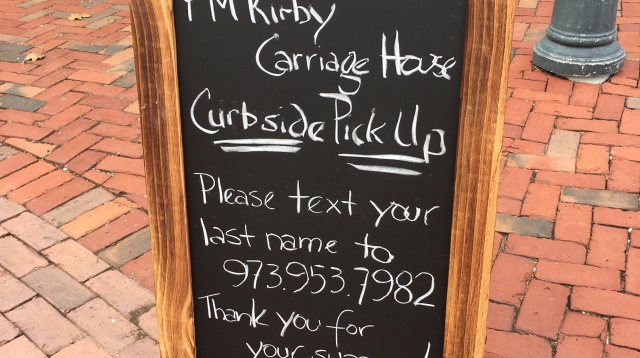 FM Kirby
Carriage House
Curbside Pick Up
Please text your
last name to
973.953.7982
Thank you for
your